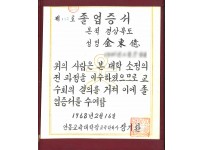 졸업증서
본적 경상북도
성명 金東德
위의 사람은 본 대학 소정의
전 과정을 이수하였으므로 교
수회의 결의를 거쳐 이에 졸
업증서를 수여함
1968년 2월 16일
안동교육대학장